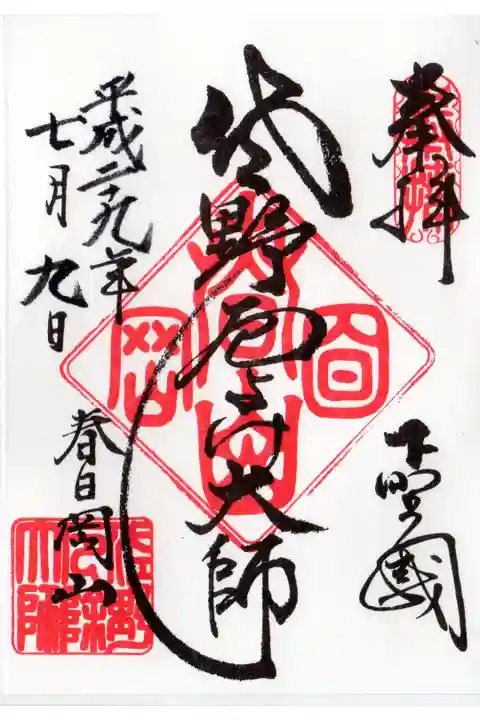 奉拝
下野國
佐野厄よけ大師
平成二十九年
七月九日
春日岡山